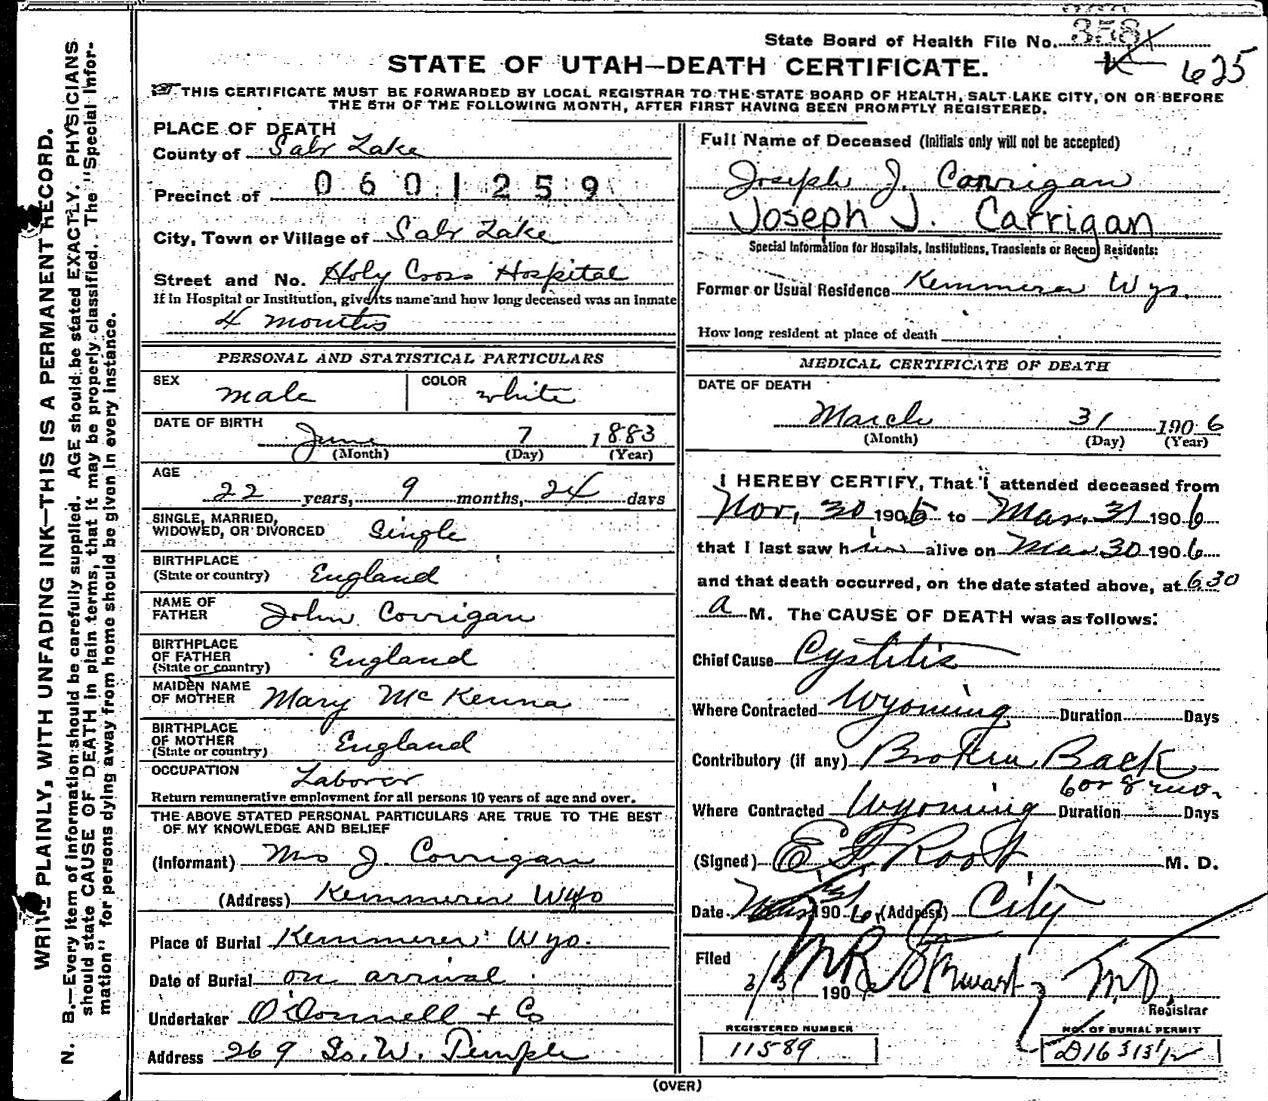 State Board of Health File No. 358
625
STATE OF UTAH—DEATH CERTIFICATE.
THIS CERTIFICATE MUST BE FORWARDED BY LOCAL REGISTRAR TO THE STATE BOARD OF HEALTH, SALT LAKE CITY, ON OR BEFORE
THE 5TH OF THE FOLLOWING MONTH, AFTER FIRST HAVING BEEN PROMPTLY REGISTERED.
WRITE PLAINLY, WITH UNFADING INK—THIS IS A PERMANENT RECORD.
N. B.—Every item of information should be carefully supplied. AGE should be stated EXACTLY. PHYSICIANS
should state CAUSE OF DEATH in plain terms, that it may be properly classified. The "Special Infor-
mation" for persons dying away from home should be given in every instance.
PLACE OF DEATH
County of Salt Lake
Precinct of 0601259
City, Town or Village of Salt Lake
Street and No. Holy Cross Hospital
If in Hospital or Institution, give its name and how long deceased was an inmate
4 months
PERSONAL AND STATISTICAL PARTICULARS
SEX male
COLOR white
DATE OF BIRTH
June 7 1883
(Month) (Day) (Year)
AGE
22 years, 9 months, 24 days
SINGLE, MARRIED,
WIDOWED, OR DIVORCED Single
BIRTHPLACE
(State or country) England
NAME OF
FATHER John Corrigan
BIRTHPLACE
OF FATHER
(State or country) England
MAIDEN NAME
OF MOTHER Mary McKenna
BIRTHPLACE
OF MOTHER
(State or country) England
OCCUPATION Laborer
Return remunerative employment for all persons 10 years of age and over.
THE ABOVE STATED PERSONAL PARTICULARS ARE TRUE TO THE BEST
OF MY KNOWLEDGE AND BELIEF
(Informant) Mrs J. Corrigan
(Address) Kemmerer Wyo
Place of Burial Kemmerer Wyo.
Date of Burial on arrival
Undertaker O'Donnell + Co
Address 269 So. W. Temple
Full Name of Deceased (Initials only will not be accepted)
Joseph J. Corrigan
Joseph J. Carrigan
Special Information for Hospitals, Institutions, Transients or Recent Residents:
Former or Usual Residence Kemmerer Wyo.
How long resident at place of death
MEDICAL CERTIFICATE OF DEATH
DATE OF DEATH
March 31 1906
(Month) (Day) (Year)
I HEREBY CERTIFY, That I attended deceased from
Nov, 30 1905 to Mar. 31 1906
that I last saw him alive on Mar 30 1906
and that death occurred, on the date stated above, at 630
a M. The CAUSE OF DEATH was as follows:
Chief Cause Cystitis
Where Contracted Wyoming Duration Days
Contributory (if any) Broken Back
6 or 8 mo.
Where Contracted Wyoming Duration Days
(Signed) E F Root M. D.
Date 1906 (Address) City
Filed 3/31 1906 Stewart M.D.
Registrar
REGISTERED NUMBER
11589
NO. OF BURIAL PERMIT
(OVER)